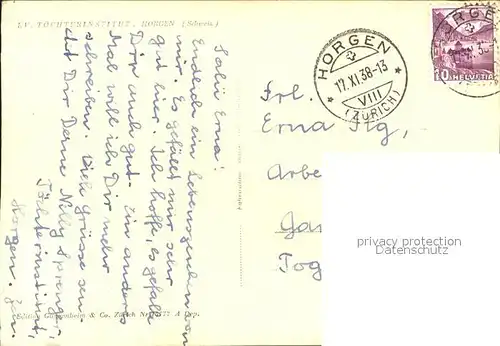 EV. TÖCHTERINSTITUT, HORGEN (Schweiz)
Salü Erna!
Endlich ein Lebenszeichen von
mir. Es gefällt mir sehr
gut hier. Ich hoffe, es gefalle
Dir auch gut. Ein anders
Mal will ich Dir mehr
schreiben. Viele Grüsse sen-
det Dir Deine Nelly
Töchterinstitut,
Horgen.
Edition Guggenheim & Co. Zürich Nr. 577 A Dep.
HORGEN
17.XI.38-13
VIII
(ZÜRICH)
HORGEN
HELVETIA
Frl.
Erna Ilg,
Arbe
Gas
Tog
privacy protection
Datenschutz